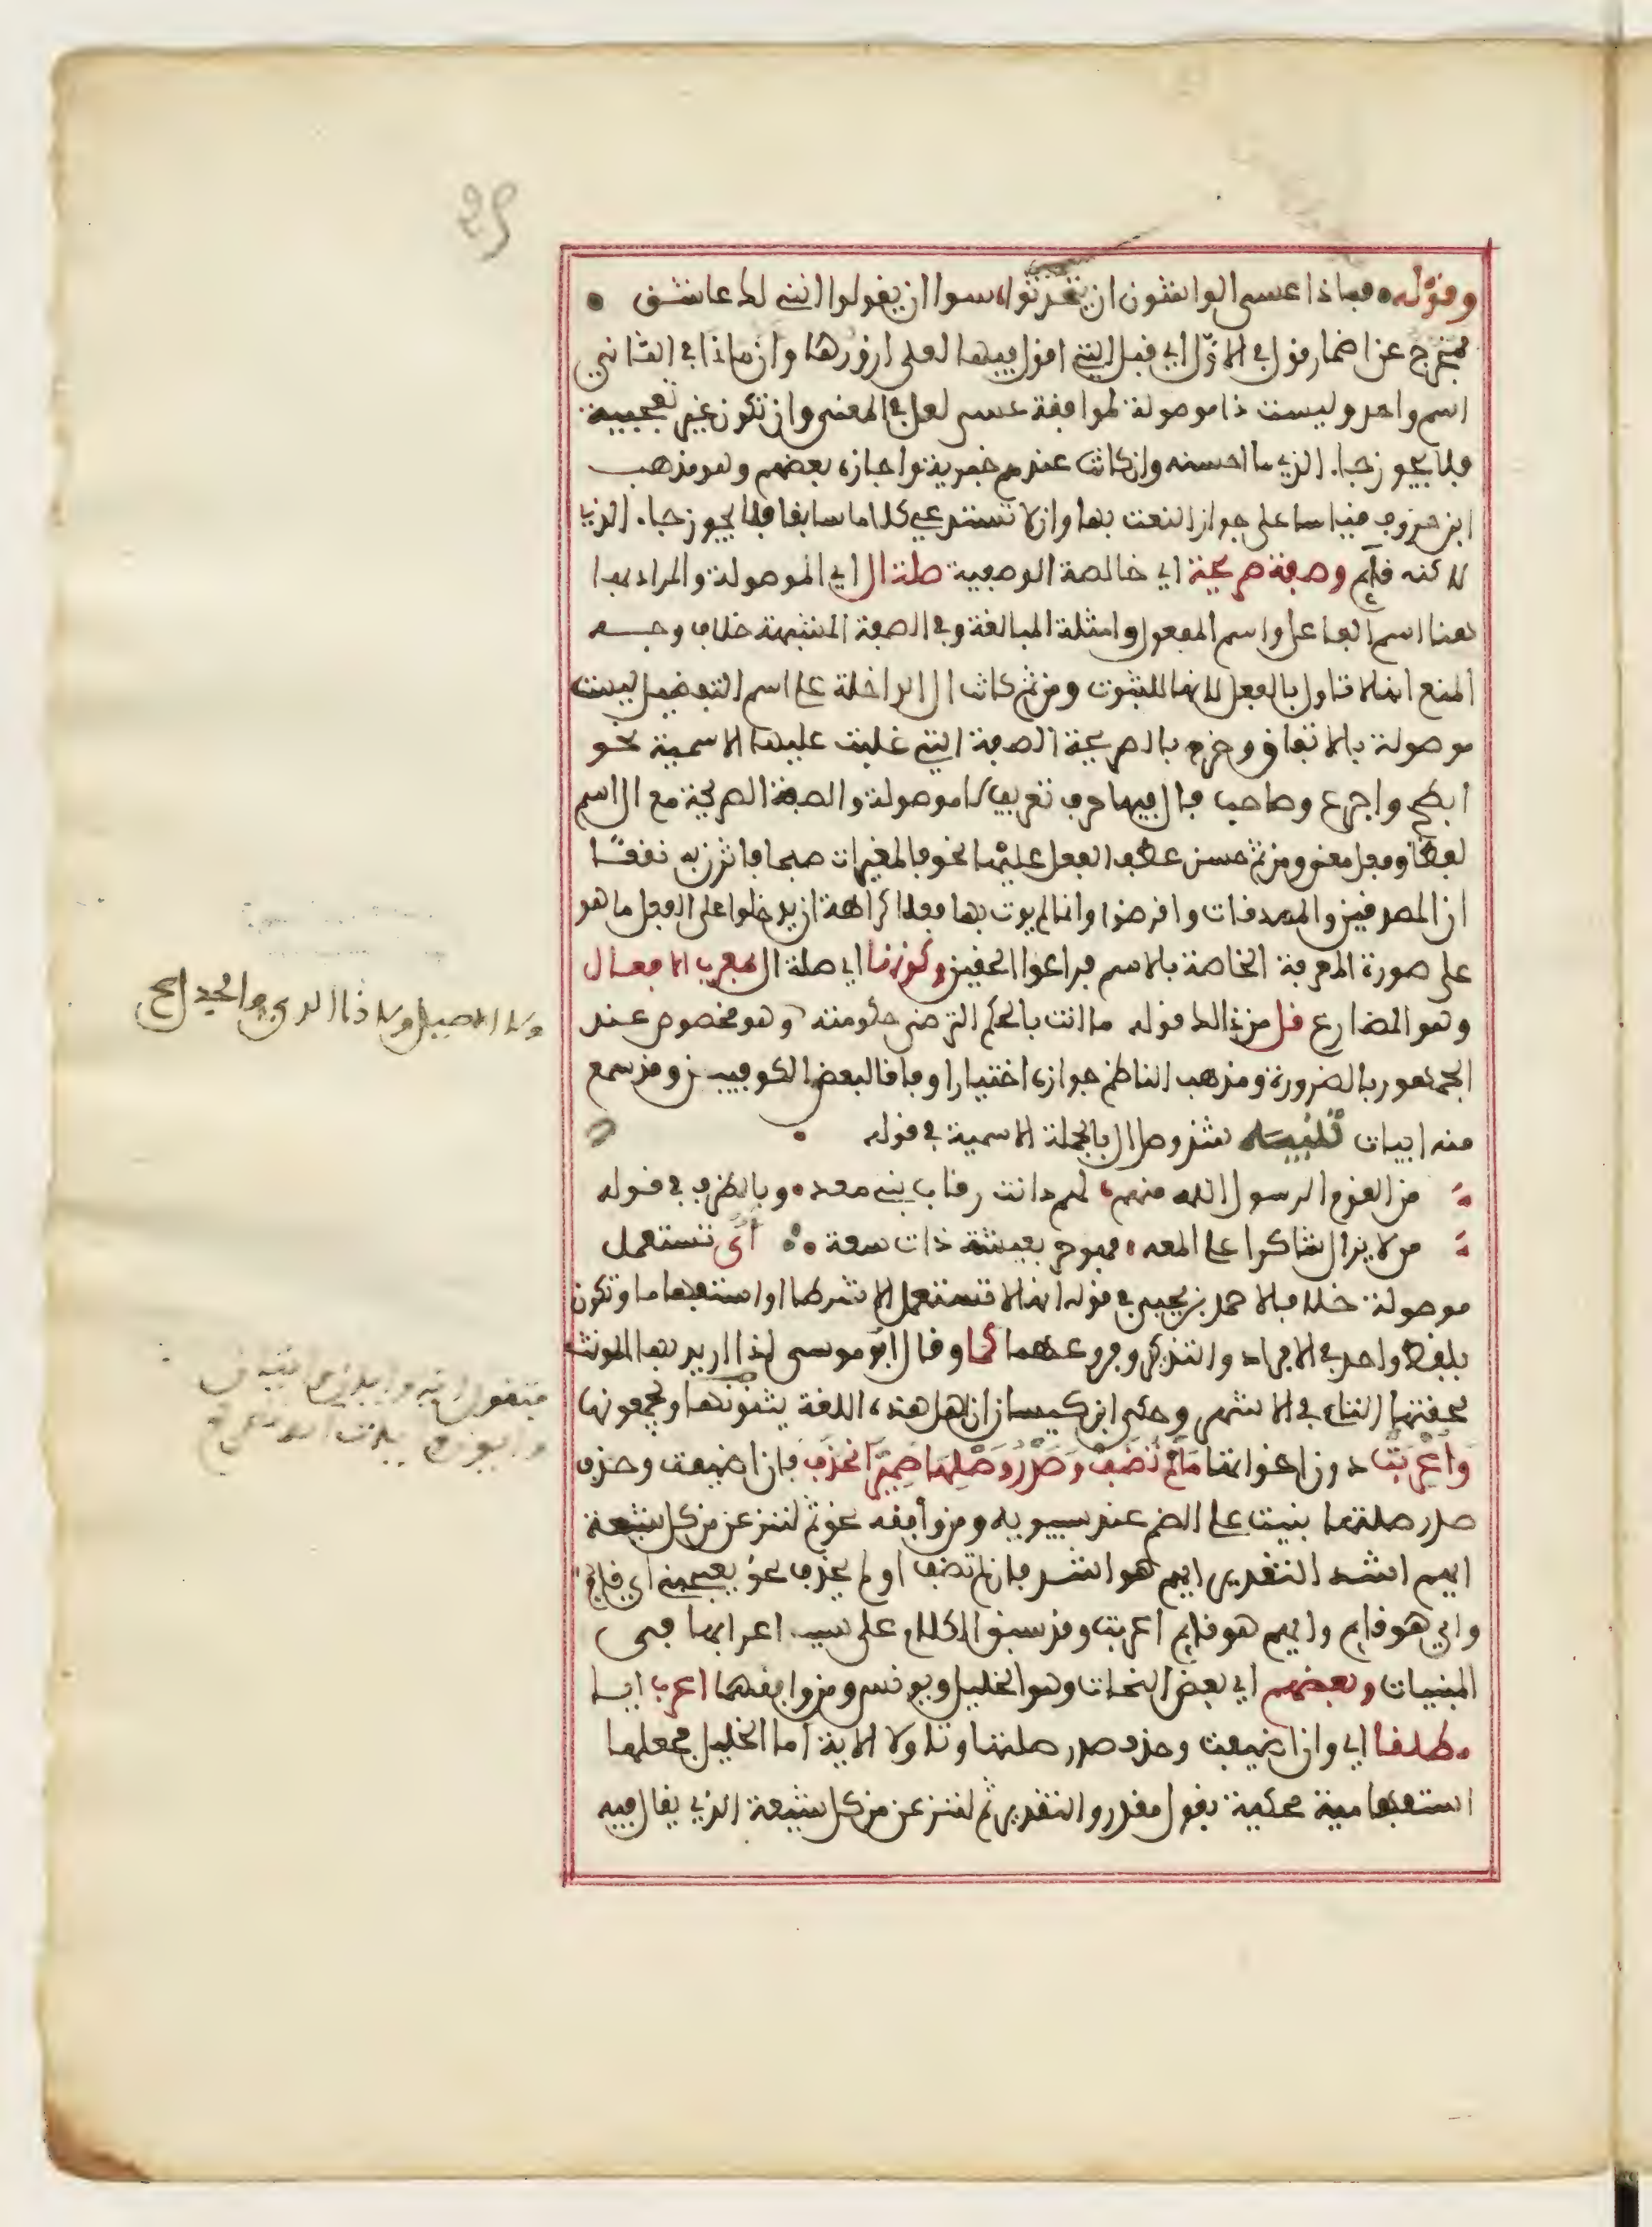 وقوله • فماذا عسى الواشون ان يتحدثوا، سوا ان يقولوا انني لك عاشق •
فمخرج عن اضمار قول في الاول اي قبل التي اقول فيها لعلي ازورها وان ماذا في الثاني
اسم واحد وليست ذا موصولة لموافقة عسى لعل في المعنى وان تكون غير تعجبية
فلا يجوز جاء الذي ما احسنه وان كانت عندهم خبرية واجازه بعضهم وهو مذهب
ابن خروف قياسا على جواز النعت بها وان لا تستدعي كلاما سابقا فلا يجوز جاء الذي
لاكنه قايم وصفة صريحة اي خالصة الوصفية صلة ال اي الموصولة والمراد بها
هنا اسم الفاعل واسم المفعول وامثلة المبالغة وفي الصفة المشبهة خلاف وجه
المنع انها لا تاول بالفعل لانها للثبوت ومن ثم كانت ال الداخلة على اسم التفضيل ليست
موصولة بالاتفاق وخرج بالصريحة الصفة التي غلبت عليها الاسمية نحو
ابطح واجرع وصاحب فال فيها حرف تعريف لا موصولة والصفة الصريحة مع ال اسم
لفظا وفعل معنى ومن ثم حسن عطف الفعل عليها نحو فالمغيرات صبحا فاثرن به نقعا
ان المصدقين والمصدقات واقرضوا وانما لم يوت بها فعلا كراهة ان يدخلوا على الفعل ما هو
على صورة المعرفة الخاصة بالاسم فراعوا الحقين وكونها اي صلة ال بمعرب الافعال
وهو المضارع قل من ذالك قوله ما انت بالحكم الترضى حكومته وهو مخصوص عند
الجمهور بالضرورة ومذهب الناظم جوازه اختيارا وفاقا لبعض الكوفيين وقد سمع
منه ابيات تنبيه شذ وصل ال بالجملة الاسمية في قوله •
من القوم الرسول الله منهم، لهم دانت رقاب بني معد • وبالظرف في قوله
من لا يزال شاكرا على المعه • فهو حر بعيشة ذات سعة • اي تستعمل
موصولة خلافا لاحمد بن يحيى في قوله انها لا تستعمل الا شرطا او استفهاما وتكون
بلفظ واحد في الافراد والتذكير وفروعهما كما وقال ابو موسى اذا اريد بها المونث
لحقتها التاء في الاشهر وحكى ابن كيسان ان اهل هذه اللغة يثنونها ويجمعونها
واعربت دون اخواتها ما لم تضف وصدر وصلها ضمير انحذف فان اضيفت وحذف
صدر صلتها بنيت على الضم عند سيبويه ومن وافقه نحو ثم لننزعن من كل شيعة
ايهم اشد التقدير ايهم هو اشد فان لم تضف او لم يحذف نحو يعجبني اي قايم
واي هو قايم وايهم هو قايم اعربت وقد سبق الكلام على سبب اعرابها في
المبنيات وبعضهم اي بعض النحات وهو الخليل ويونس ومن وافقهما اعرب ايا
مطلقا اي وان اضيفت وحذف صدر صلتها وتاولا الاية اما الخليل فجعلها
استفهامية محكية بقول مقدر والتقدير ثم لننزعن من كل شيعة الذي يقال فيه